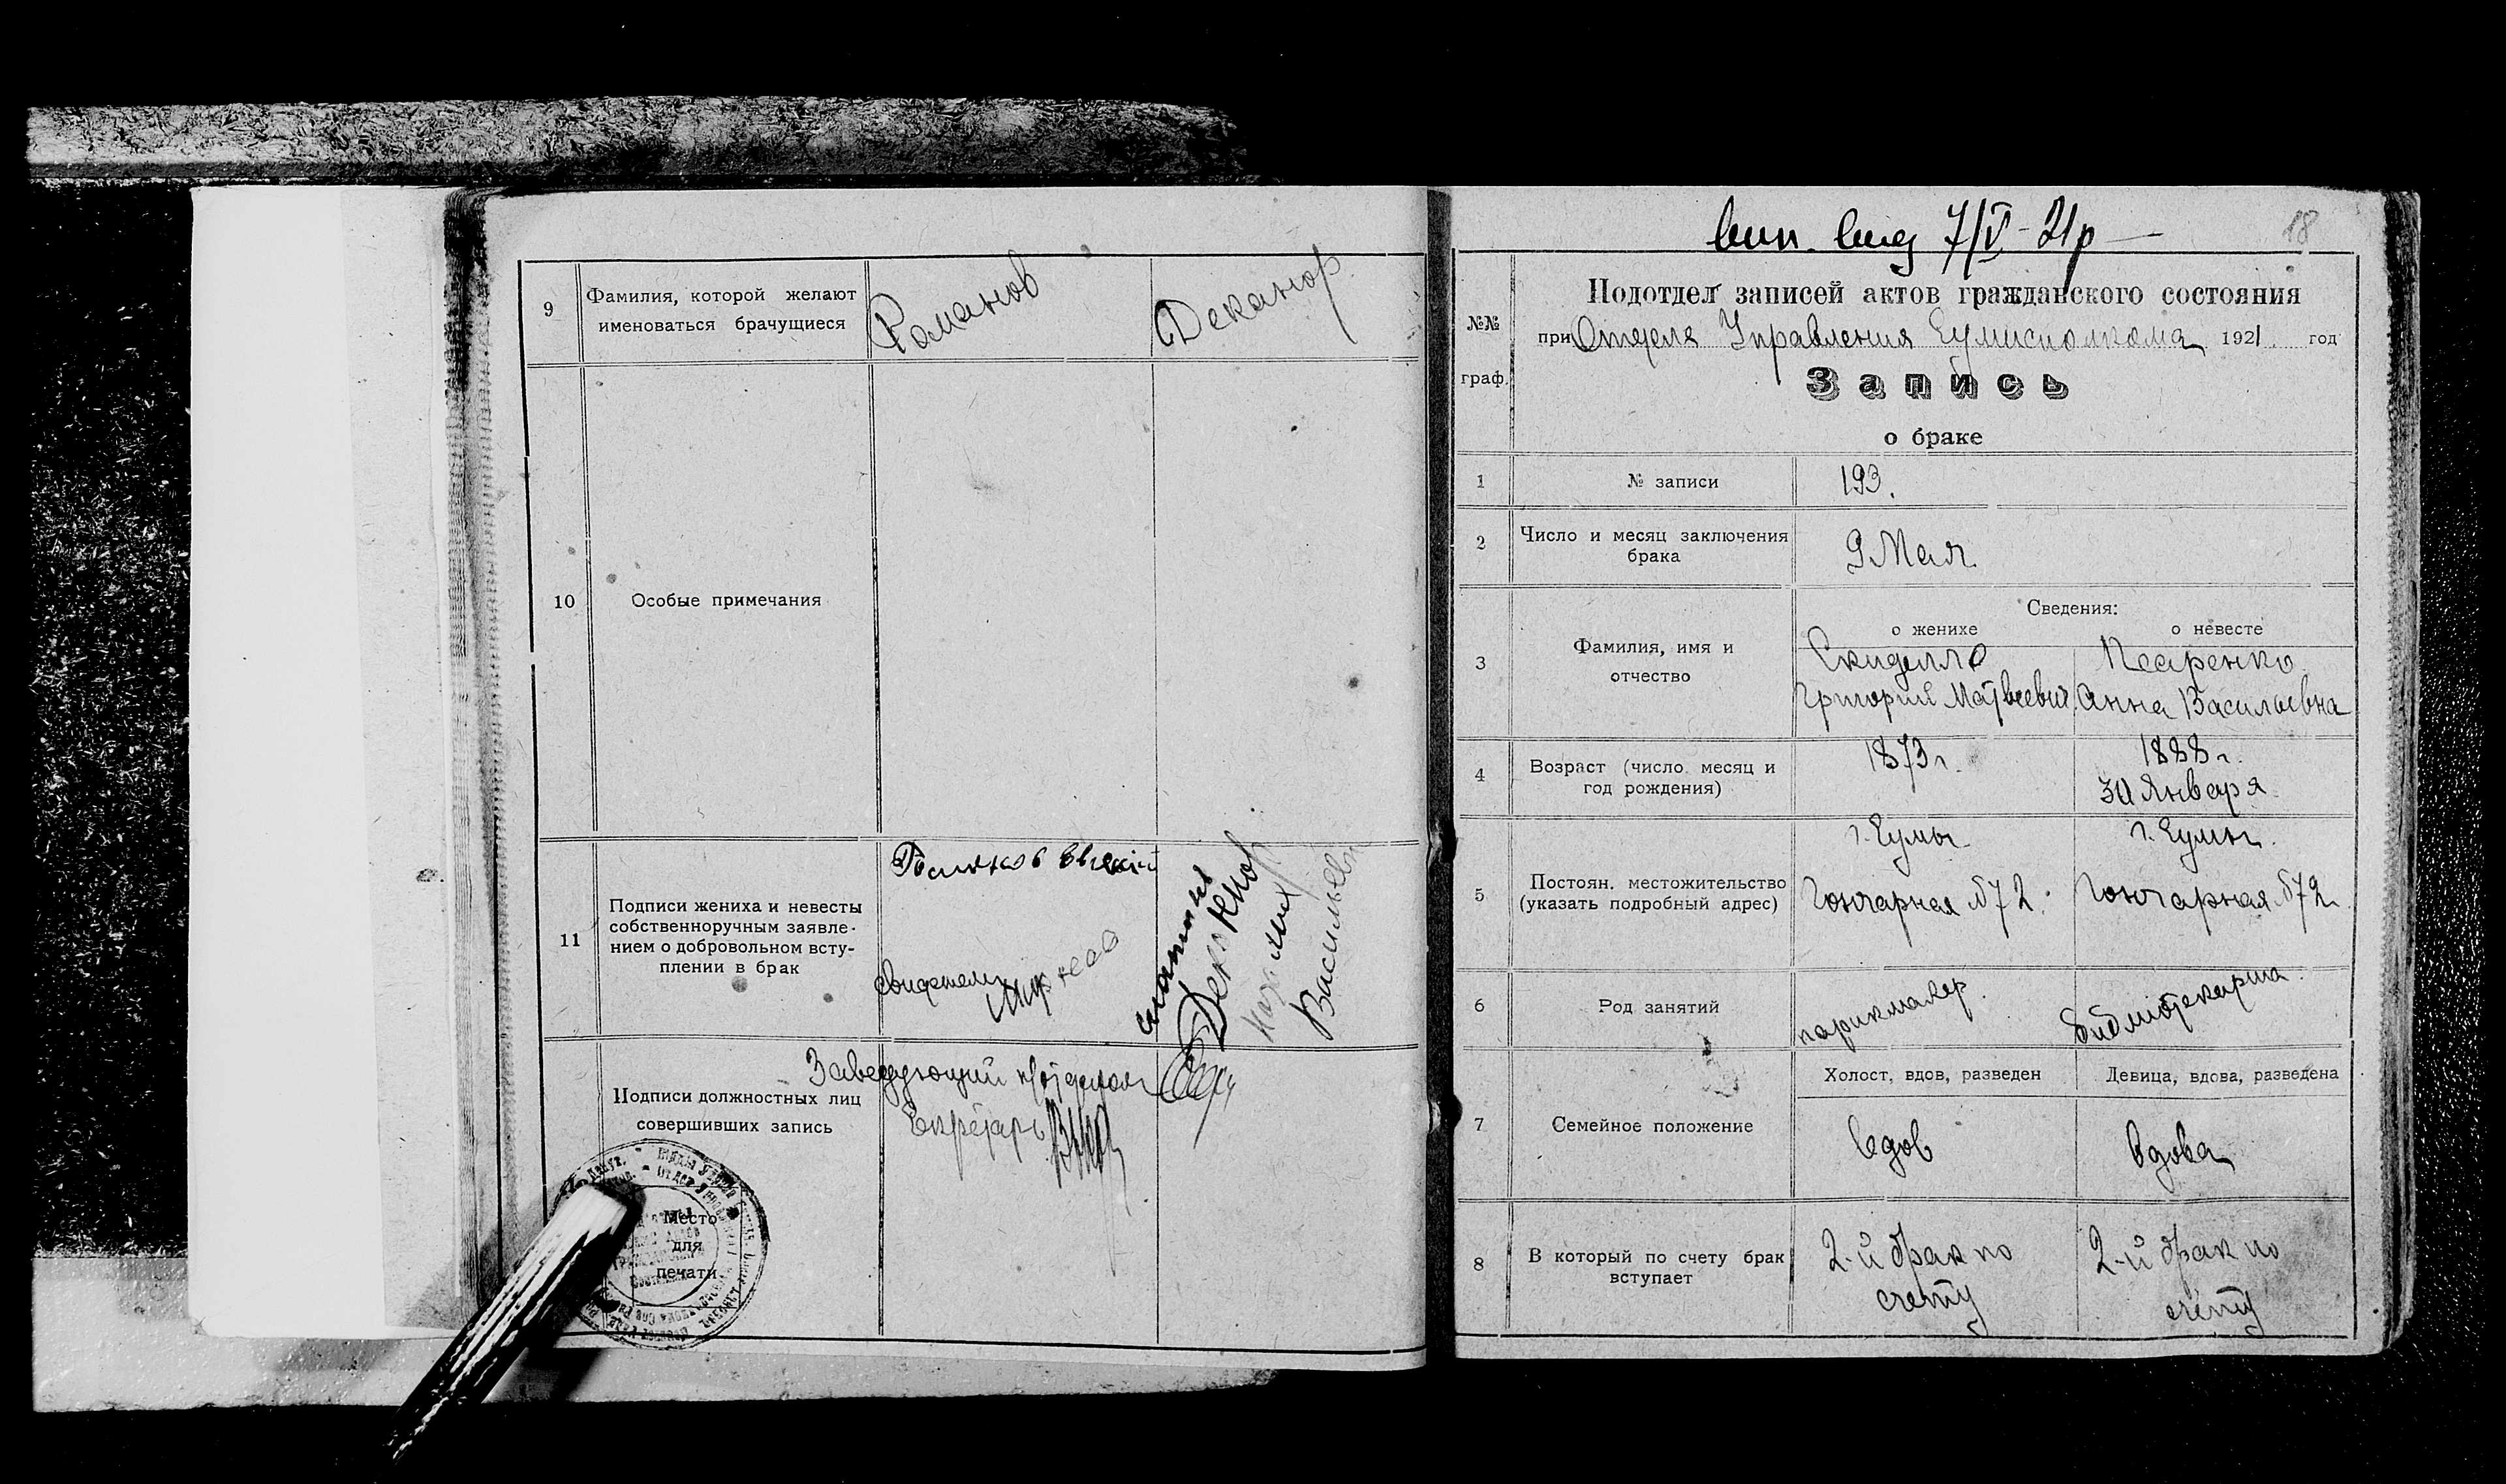 9
Фамилия, которой желают
именоваться брачущиеся
Романов
Деканор
10
Особые примечания
11
Подписи жениха и невесты
собственноручным заявле-
нием о добровольном всту-
плении в брак
свидетели
Васильев
Подписи должностных лиц
совершивших запись
Заведующий п/отделом
Секретарь
Место
для
печати
вид 7/V-21р
18
№№
граф.
Подотдел записей актов гражданского состояния
при Отделе Управления Сумисполкома 1921 год
Запись
о браке
1
№ записи
193.
2
Число и месяц заключения
брака
9 Мая
3
Фамилия, имя и
отчество
Сведения:
о женихе
о невесте
Скиделло
Григорий Матвеевич
Писаренко
Анна Васильевна
4
Возраст (число, месяц и
год рождения)
1873 г.
1888 г.
30 Января
5
Постоян. местожительство
(указать подробный адрес)
г. Сумы
Гончарная №72.
г. Сумы.
Гончарная №72
6
Род занятий
парикмахер.
библиотекарша.
7
Семейное положение
Холост, вдов, разведен
Девица, вдова, разведена
Вдов
Вдова
8
В который по счету брак
вступает
2-й брак по
счету
2-й брак по
счету